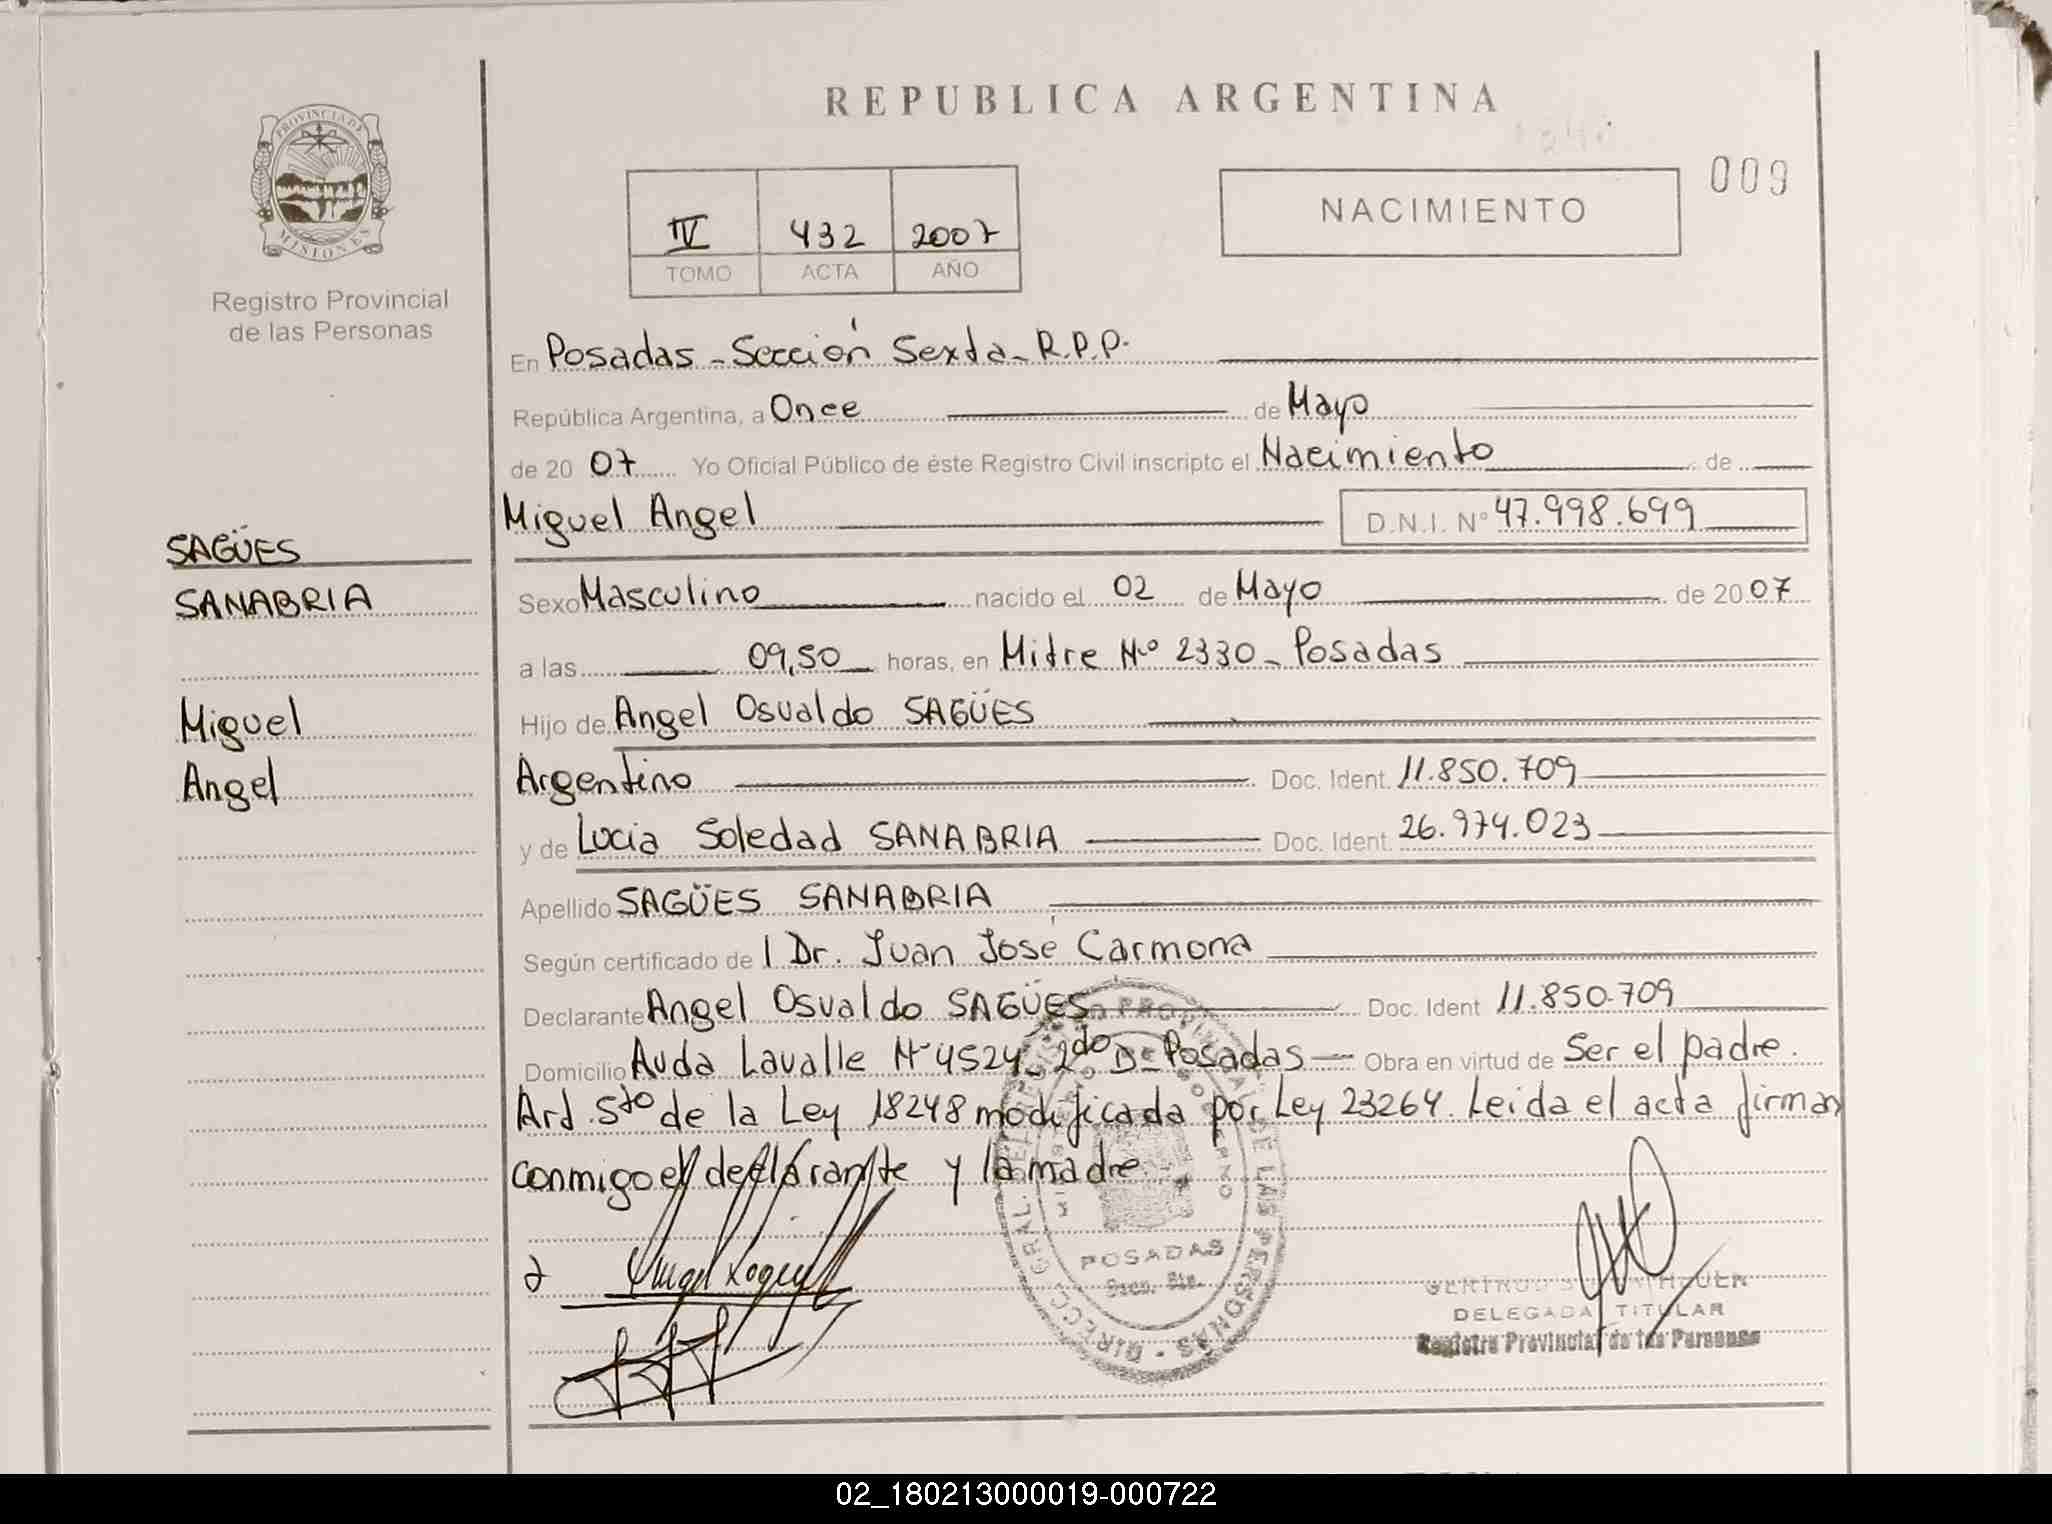 PROVINCIA DE
MISIONES
Registro Provincial
de las Personas
REPUBLICA ARGENTINA
009
IV 432 2007
TOMO ACTA AÑO
NACIMIENTO
En Posadas - Sección Sexta - R.P.P.
República Argentina, a Once de Mayo
de 20 07 Yo Oficial Público de éste Registro Civil inscripto el Nacimiento de
Miguel Angel D.N.I. Nº 47.998.699
SAGÜES
SANABRIA
Miguel
Angel
Sexo Masculino nacido el 02 de Mayo de 20 07
a las 09,50 horas, en Mitre Nº 2330 - Posadas
Hijo de Angel Osvaldo SAGÜES
Argentino Doc. Ident. 11.850.709
y de Lucia Soledad SANABRIA Doc. Ident. 26.974.023
Apellido SAGÜES SANABRIA
Según certificado de l Dr. Juan José Carmona
Declarante Angel Osvaldo SAGÜES Doc. Ident 11.850.709
Domicilio Avda Lavalle Nº 4524 - 2do D - Posadas Obra en virtud de Ser el padre.
Art. 5to de la Ley 18248 modificada por Ley 23264. Leida el acta firman
conmigo el declarante y la madre.
DIRECC. GRAL. DEL REGISTRO PROVINCIAL DE LAS PERSONAS
POSADAS
DELEGADA TITULAR
Registro Provincial de las Personas
02_180213000019-000722